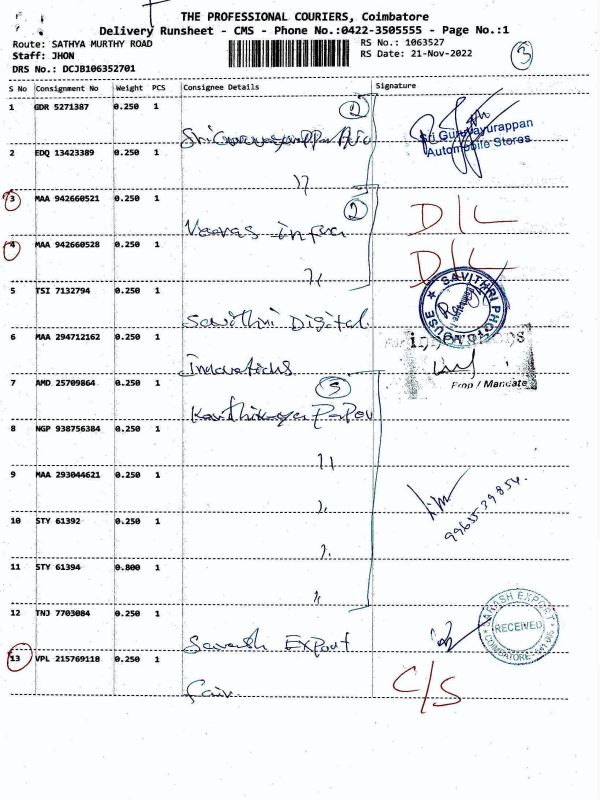 THE PROFESSIONAL COURIERS, Coimbatore
Delivery Runsheet - CMS - Phone No.:0422-3505555 - Page No.:1
Route: SATHYA MURTHY ROAD
RS No.: 1063527
Staff: JHON
RS Date: 21-Nov-2022
DRS No.: DCJB106352701
3
S No Consignment No Weight PCS Consignee Details Signature
1 GDR 5271387 0.250 1
2
Sri Guruvayurappan
Automobile Stores
2 EDQ 13423389 0.250 1
"
3 MAA 942660521 0.250 1
2
D/L
4 MAA 942660528 0.250 1
"
D/L
5 TSI 7132794 0.250 1
Savithri Digital
SAVITHRI PHOTO HOUSE
6 MAA 294712162 0.250 1
innovations
Prop / Mandate
7 AMD 25709864 0.250 1
5
8 NGP 938756384 0.250 1
"
9 MAA 293044621 0.250 1
"
10 STY 61392 0.250 1
"
11 STY 61394 0.800 1
"
12 TNJ 7703084 0.250 1
Export
RECEIVED
13 VPL 215769118 0.250 1
C/S